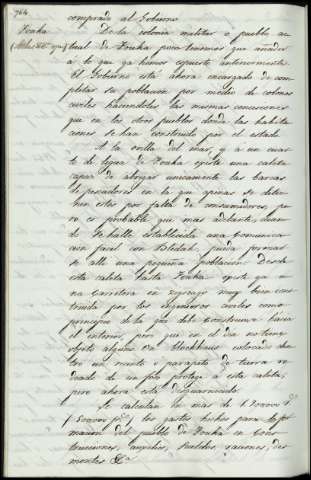 764
comprada al Gobierno
Fouka De la colonia militar o pueblo ac
tual de Fouka poco tenemos que añadir
á lo que ya hemos espuesto anteriormente.
El Gobierno está ahora encargado de com
pletar su poblacion por medio de colonos
civiles haciendoles las mismas concesiones
que en los otros pueblos donde las habita
ciones se han construido por el estado
A la orilla del mar, y á un cuar
to de legua de Fouka existe una caleta
capaz de abrigar unicamente las barcas
de pescadores en la que apenas se detie
nen estos por falta de consumidores, pe
ro es probable que mas adelante, cuan
do se halle establecida una comunica
cion facil con Blidah, pueda formar
se alli una pequeña poblacion. Desde
esta caleta hasta Fouka existe ya u
na carretera en zigzags muy bien cons
truida por los ingenieros civiles como
principio de la que debe construirse hacia
el interior, pero que en el dia no tiene
objeto alguno. Un Blockhaus colocado den
tro un recinto o parapeto de tierra ro
deado de un foso protege á esta caleta;
pero ahora está desguarnecido.
Se calculan en mas de
los gastos hechos para la for
macion del pueblo de Fouka en cons
trucciones, auxilios, sueldos, raciones, des
montes &c